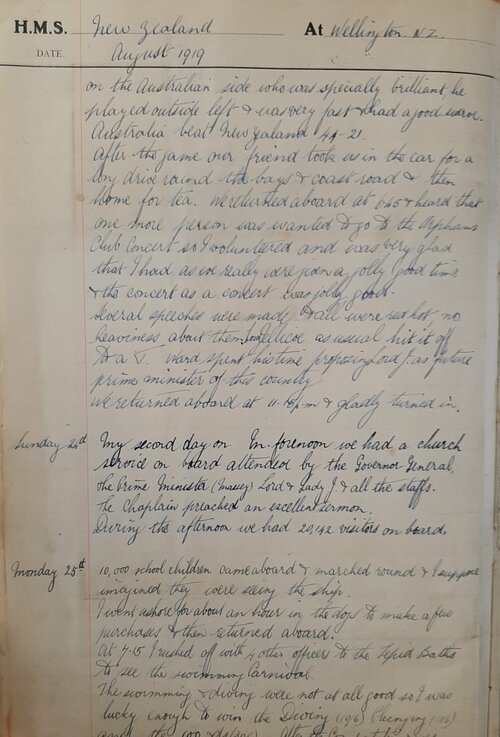 H.M.S. New Zealand At Wellington N.Z.
DATE. August 1919
on the Australian side who was specially brilliant, he
played outside left & was very fast & had a good swerve.
Australia beat New Zealand 44-21.
After the game our friend took us in the car for a
long drive round the bays & coast road & then
home for tea. We returned aboard at 6.45 & heard that
one more person was wanted to go to the Orphans
Club Concert so I volunteered and was very glad
that I had as we really were given a jolly good time
& the concert as a concert was jolly good.
Several speeches were made & all were red hot no
heaviness about them. Jellicoe as usual hit it off
to a T. Ward spent his time proposing Lord J. as future
prime minister of this country.
We returned aboard at 11.15 pm & gladly turned in.
Sunday 24th My second day on. In forenoon we had a church
service on board attended by the Governor General,
the Prime Minister (Massey) Lord & Lady J. & all the staffs.
The Chaplain preached an excellent sermon.
During the afternoon we had 20,142 visitors on board.
Monday 25th 10,000 school children came aboard & marched round & I suppose
imagined they were seeing the ship.
I went ashore for about an hour in the dogs to make a few
purchases & then returned aboard.
At 7.15 I rushed off with 4 other officers to the Tepid Baths
to see the swimming Carnival.
The swimming & diving were not at all good so I was
lucky enough to win the Diving (19/6) Plunging (19/6)